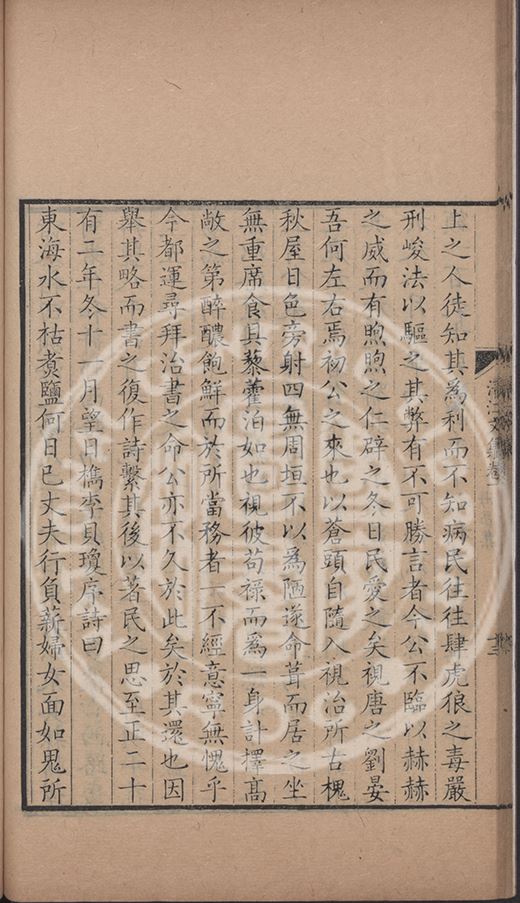 上之人徒知其為利而不知病民往往肆虎狼之毒嚴
刑峻法以驅之其弊有不可勝言者今公不臨以赫赫
之威而有煦煦之仁辟之冬日民愛之矣視唐之劉晏
吾何左右焉初公之来也以蒼頭自隨入視治所古槐
秋屋日色旁射四無周垣不以為陋遂命葺而居之坐
無重席食具藜藿泊如也視彼苟祿而為一身計擇髙
敞之第醉醲飽鮮而於所當務者一不經意寧無愧乎
今都運尋拜治書之命公亦不久於此矣於其還也因
舉其略而書之復作詩繫其後以著民之思至正二十
有二年冬十一月望日檇李貝瓊序詩曰
東海水不枯煑鹽何日已丈夫行負薪婦女面如鬼所
清江文集卷